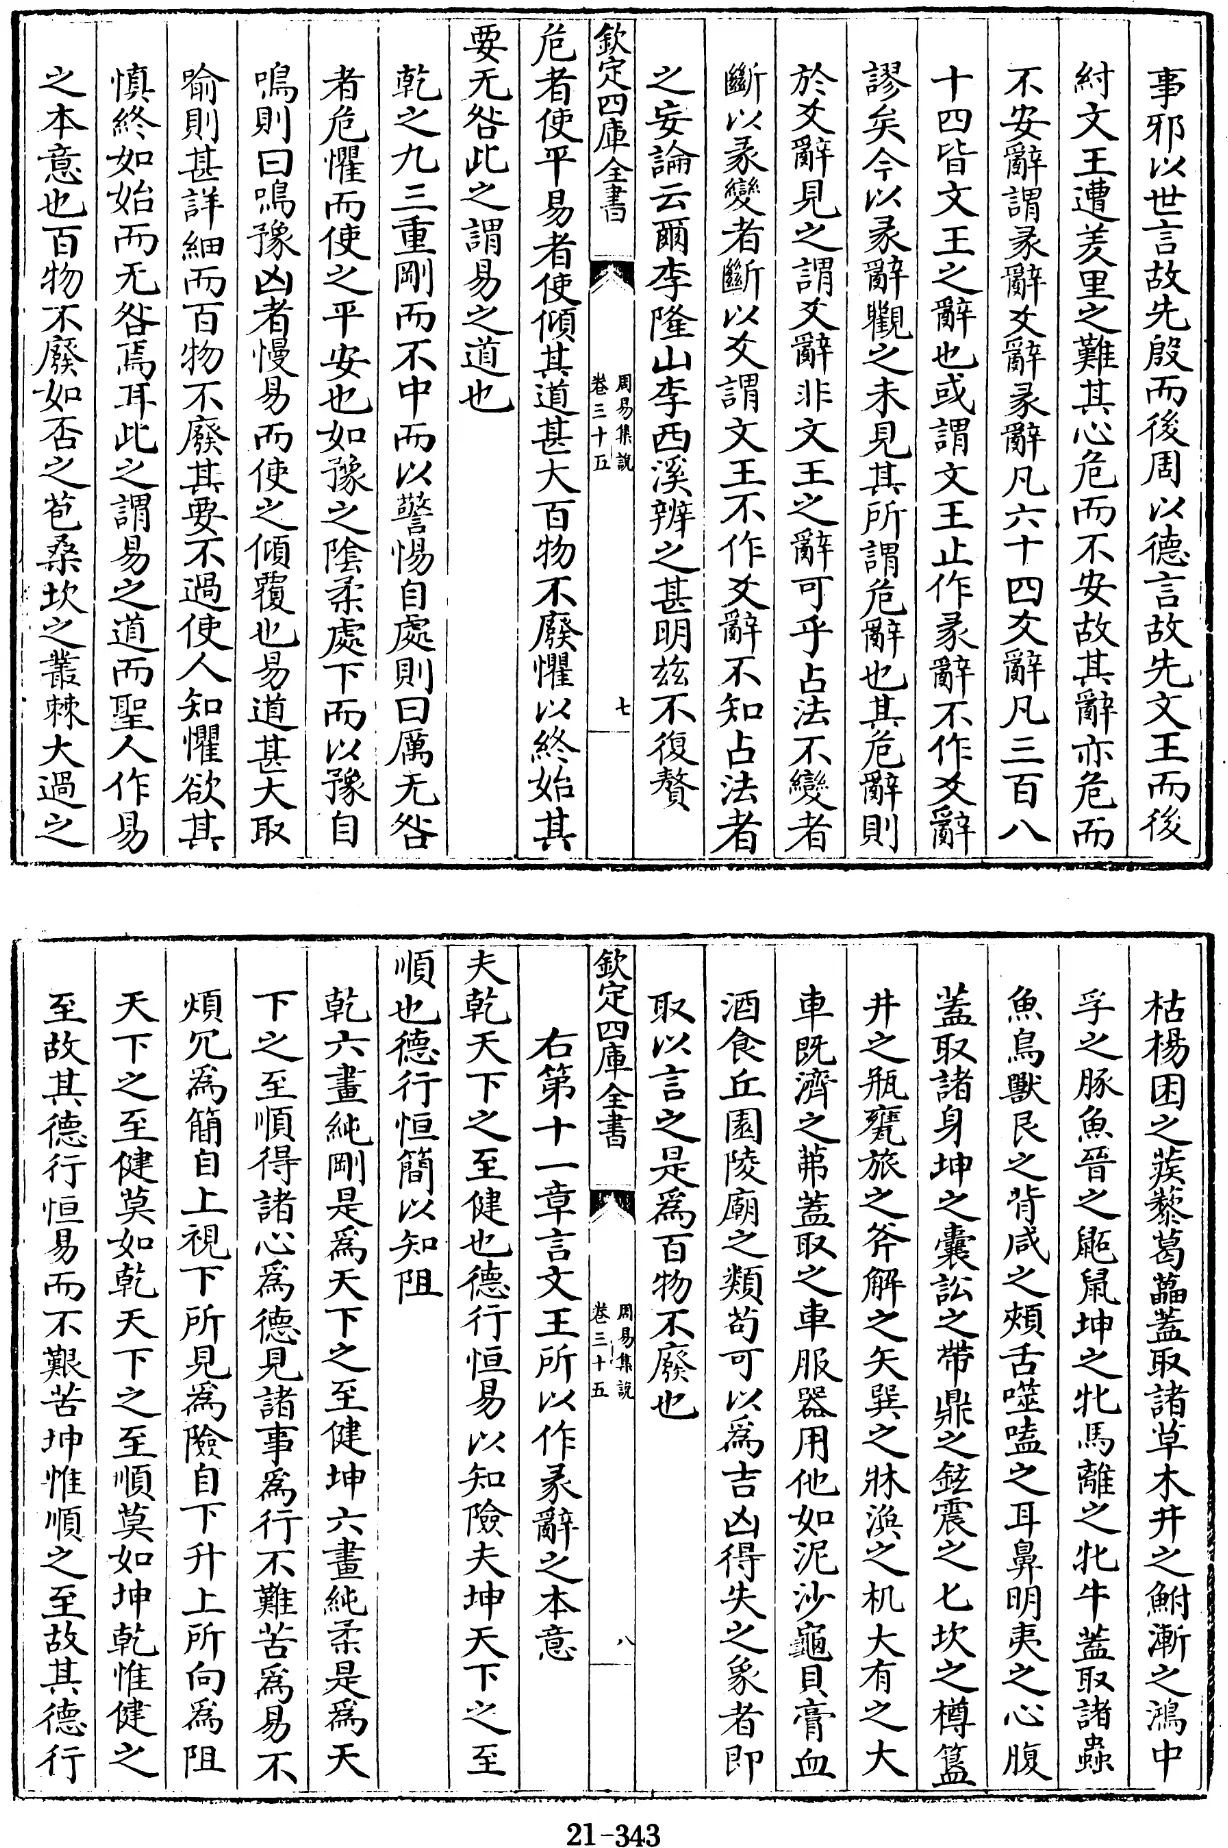 事邪以世言故先殷而後周以德言故先文王而後
紂文王遭羑里之難其心危而不安故其辭亦危而
不安辭謂彖辭爻辭彖辭凡六十四爻辭凡三百八
十四皆文王之辭也或謂文王止作彖辭不作爻辭
謬矣今以彖辭觀之未見其所謂危辭也其危辭則
於爻辭見之謂爻辭非文王之辭可乎占法不變者
斷以彖變者斷以爻謂文王不作爻辭不知占法者
之妄論云爾李隆山李西溪辨之甚明兹不復贅
欽定四庫全書
周易集說
卷三十五
七
危者使平易者使傾其道甚大百物不廢懼以終始其
要无咎此之謂易之道也
乾之九三重剛而不中而以警惕自處則曰厲无咎
者危懼而使之平安也如豫之陰柔處下而以豫自
鳴則曰鳴豫凶者慢易而使之傾覆也易道甚大取
喻則甚詳細而百物不廢其要不過使人知懼欲其
慎終如始而无咎焉耳此之謂易之道而聖人作易
之本意也百物不廢如否之苞桑坎之叢棘大過之
枯楊困之蒺藜葛藟蓋取諸草木井之鮒漸之鴻中
孚之豚魚晉之鼫鼠坤之牝馬離之牝牛蓋取諸蟲
魚鳥獸艮之背咸之頰舌噬嗑之耳鼻明夷之心腹
蓋取諸身坤之囊訟之帶鼎之鉉震之匕坎之樽簋
井之瓶甕旅之斧解之矢巽之牀渙之机大有之大
車既濟之茀蓋取之車服器用他如泥沙龜貝膏血
酒食丘園陵廟之類苟可以為吉凶得失之象者即
取以言之是為百物不廢也
欽定四庫全書
周易集說
卷三十五
八
右第十一章言文王所以作彖辭之本意
夫乾天下之至健也德行恒易以知險夫坤天下之至
順也德行恒簡以知阻
乾六畫純剛是為天下之至健坤六畫純柔是為天
下之至順得諸心為德見諸事為行不難苦為易不
煩冗為簡自上視下所見為險自下升上所向為阻
天下之至健莫如乾天下之至順莫如坤乾惟健之
至故其德行恒易而不艱苦坤惟順之至故其德行
21-343